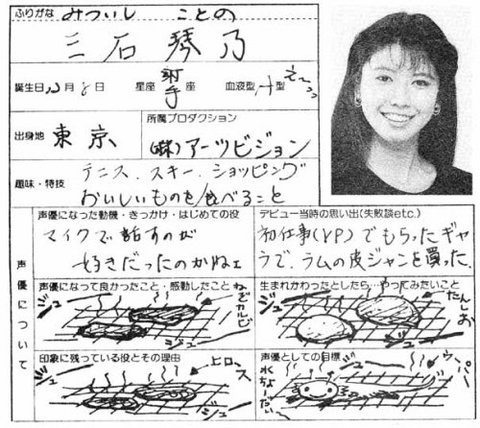 ふりがな みついし ことの
三石琴乃
誕生日 12月8日 星座 射手座 血液型 A型 えーっっ
出身地 東京、 所属プロダクション
(株)アーツビジョン
趣味・特技 テニス、スキー、ショッピング
おいしいものを食べること
声優について
声優になった動機・きっかけ・はじめての役
マイクで話すのが
好きだったのかねェ
デビュー当時の思い出(失敗談etc.)
初仕事(VP)でもらったギャ
ラで、ラムの皮ジャンを買った。
声優になって良かったこと・感動したこと
ジュー
ねぎカルビ
ジュ
生まれかわったとしたら…やってみたいこと
ジュー
たんしお
ジュー
印象に残っている役とその理由
ジュ
ヒロース
ジュー
声優としての目標
水ちょーだい
ウッパー
ジュー